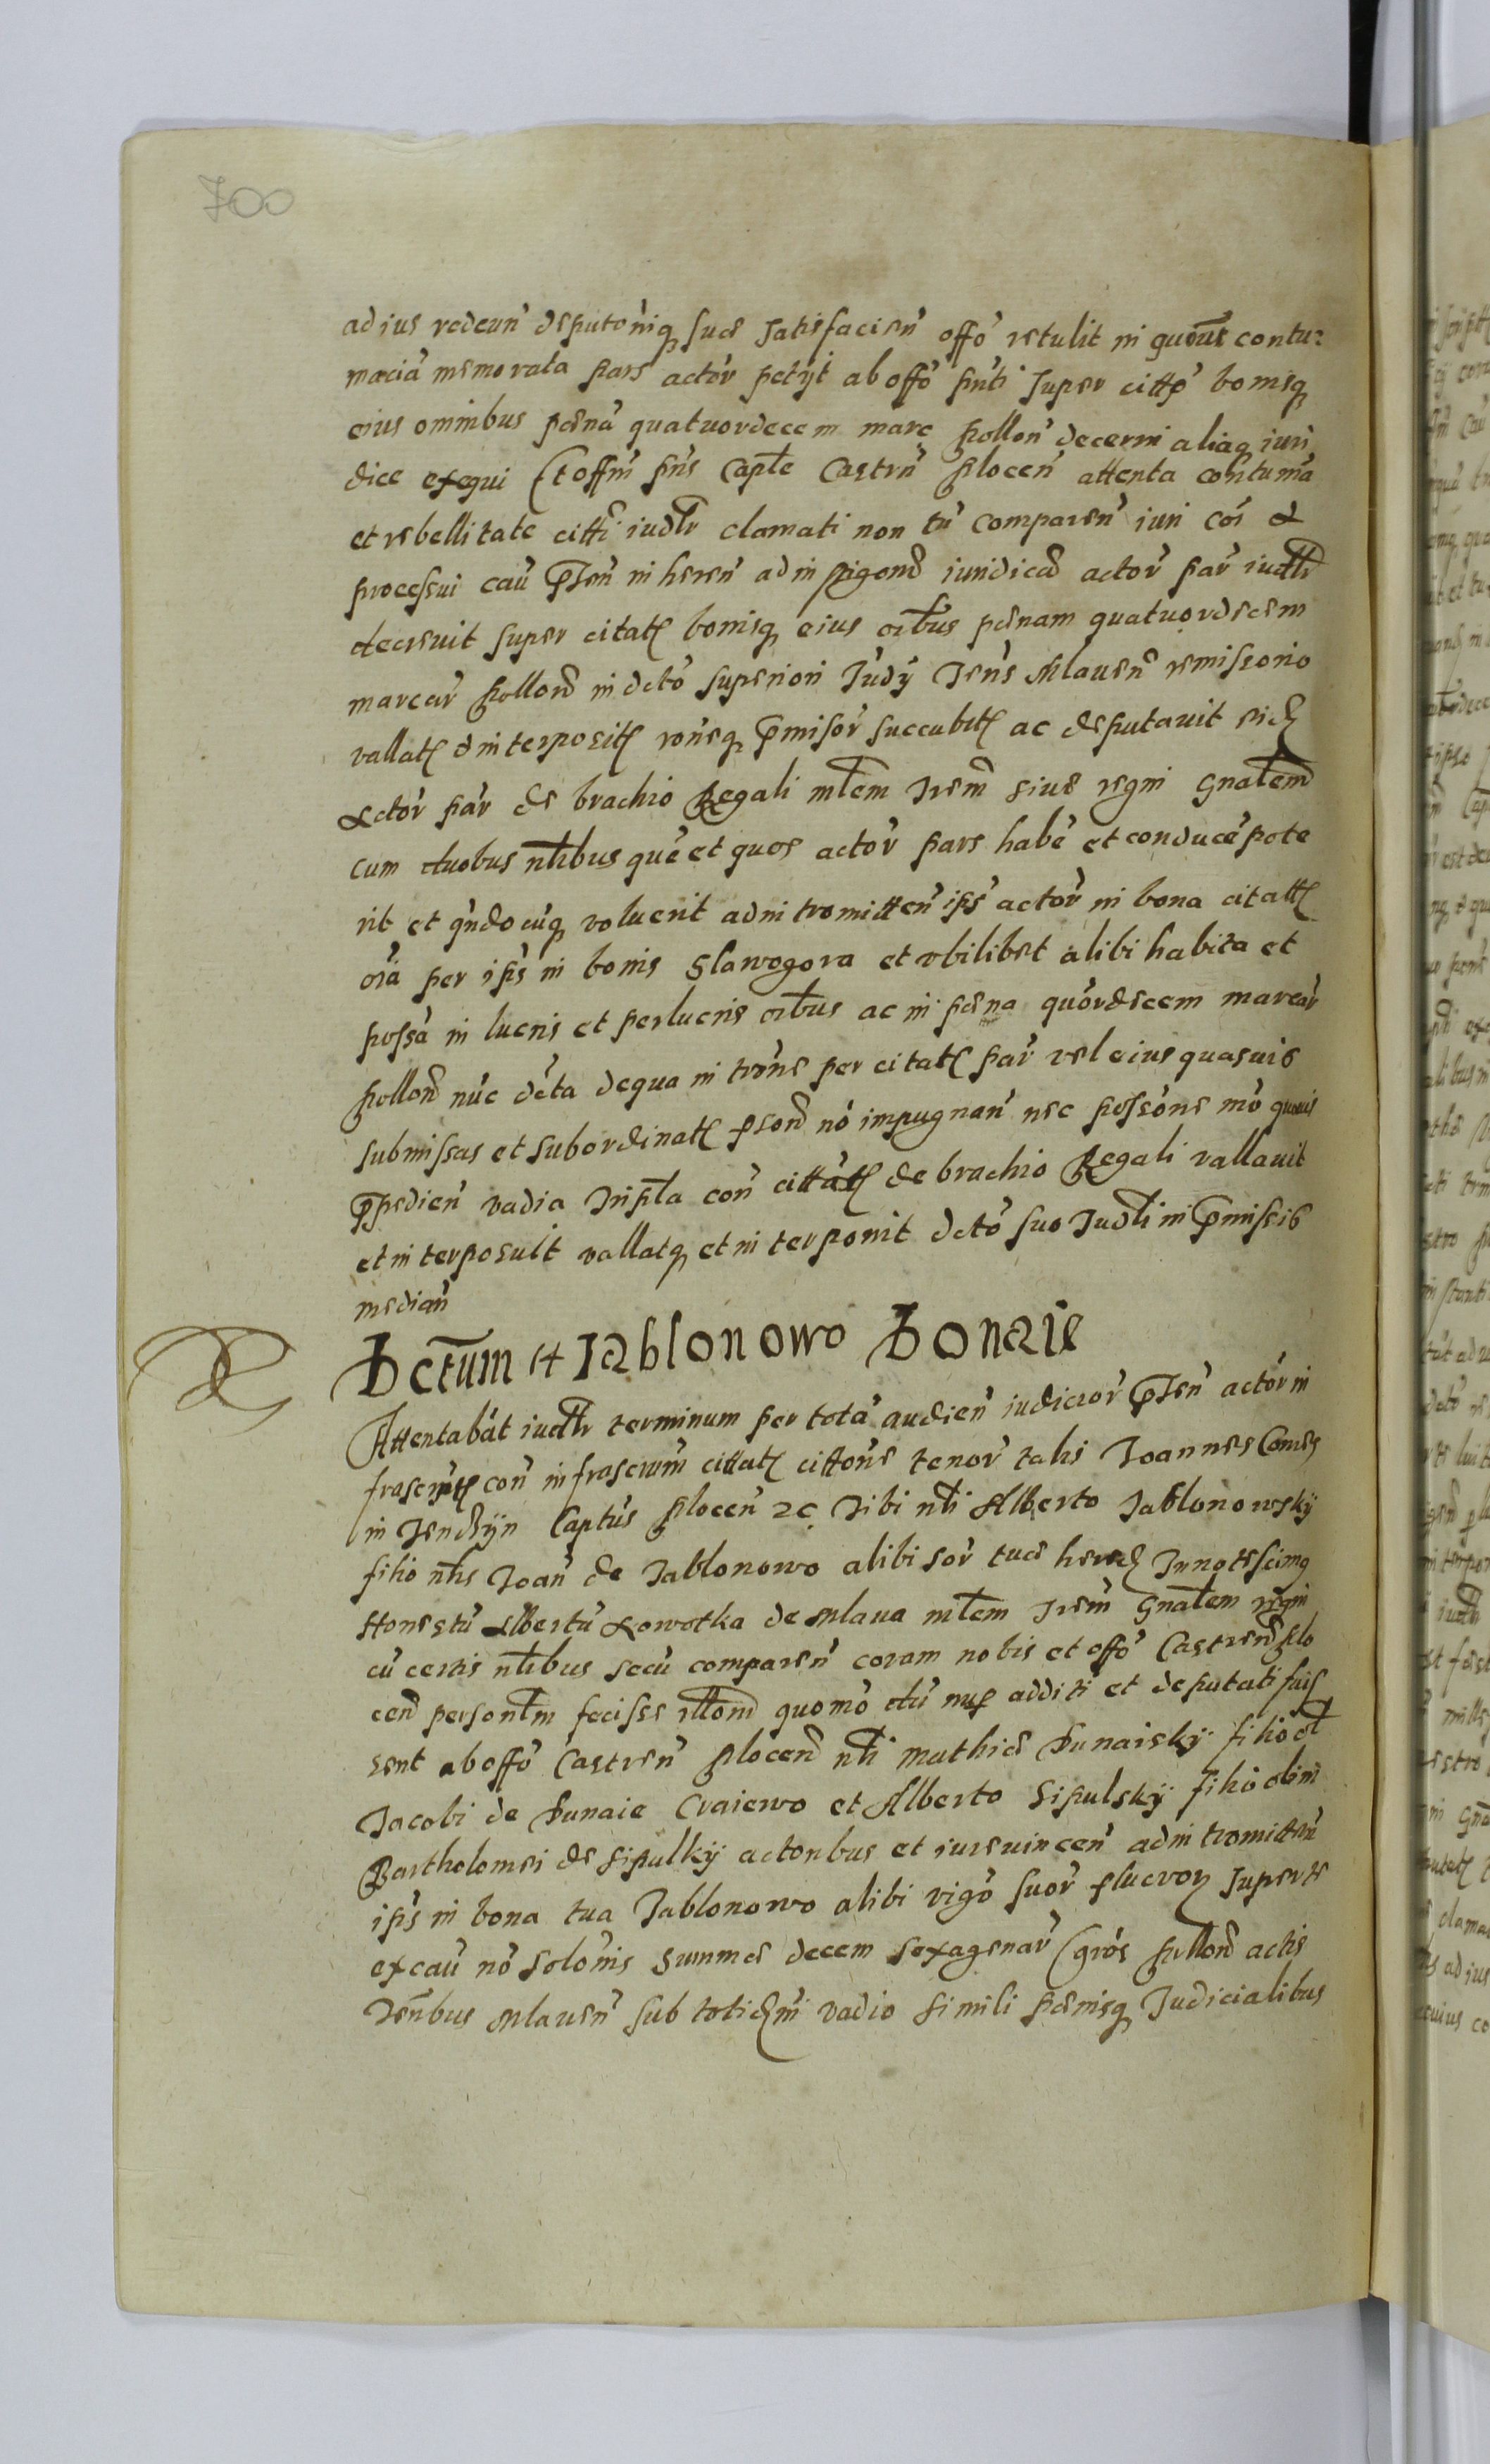 700
ad ius redeun̄ deputoniq̨ suæ satisfacien̄ offo retulit in quour contu:
maciā memorata pars actor̄ petÿt ab offo pn̄ti super citto bonisq̨
eius omnibus pænā quatuordecem marc pollon̄ decerni aliaq̨ iuri
dice exequi Et offm̄ pn̄s Caple Castrn̄ plocen̄ attenta contuma
et rebellitate citti iudlr clamati non tn̄ comparen̄ iuri coi &
processui cau p̄sen̄ inheren̄ ad in pigond iuridicā actor̄ par̄ iudlr
decreuit super citat bonisq̨ eius oībus pænam quatuordecem
marcar̄ pollon̄ in dcto superiori Judÿ Tens Mlauen̄ remissorio
vallat & interposit ronēq̨ p̄misor̄ succubit ac deputauit eid
Actor̄ par̄ de brachio Regali mlem Trem siue regni Gnalem
cum duobus nlibus quē et quos actor̄ pars habē et conducē pote
rit et qn̄do cuq̨ voluerit ad intromitten̄ ips̄ actor̄ in bona citatt
oīa per ips̄ in bonis Slawogora et vbilibet alibi habita et
possā in lucris et perlucris oībus ac in pæna quordecem marcar̄
pollon̄ nūc dcta de qua intrōne per citat par̄ vel eius quasuis
submissas et subordinat pson̄ nō impugnan̄ nec possōne mō quouis
p̄pedien̄ vadia Tripla con̄ cittat de brachio Regali vallauit
et interposuit vallatq̨ et interponit dcto suo Judli in p̄missis
median̄
Dctum H Jablonowo Donaie
Attentabat iudlr terminum per totā audien̄ iudicior̄ p̄sen̄ actor in
frascript con̄ infrascrum̄ cittat cittōne tenor̄ talis Joannes Comes
in Tenczÿn Captūs plocen̄ 2c Tibi nli Alberto Jablonowskÿ
filio nlis Joan̄ de Jablonowo alibi sor̄ tuæ hered Innotescimq
Honestū Albertū Lowotka de Mlaua mlem Trem̄ Gnalem regni
cū certis nlibus secū comparen̄ coram nobis et offo Castren̄ plo
cen̄ personlm fecisse rlloem quomō dū nup additi et deputati fuis
sent ab offo Castren̄ plocen̄ nli Mathiæ Dunaiskÿ filio ol
Jacobi de Dunaie Craiewo et Alberto Sipulskÿ filio olim
Bartholomei de Sipulkÿ actoribus et iureuincen̄ ad intromitten̄
ips̄ in bona tua Jablonowo alibi vigō suor̄ plucror̄ super te
ex cau nō solōnis summæ decem sexagenar̄ gros pollon̄ actis
Ten̄bus Mlauen̄ sub totidem vadio simili pænisq̨ Judicialibus